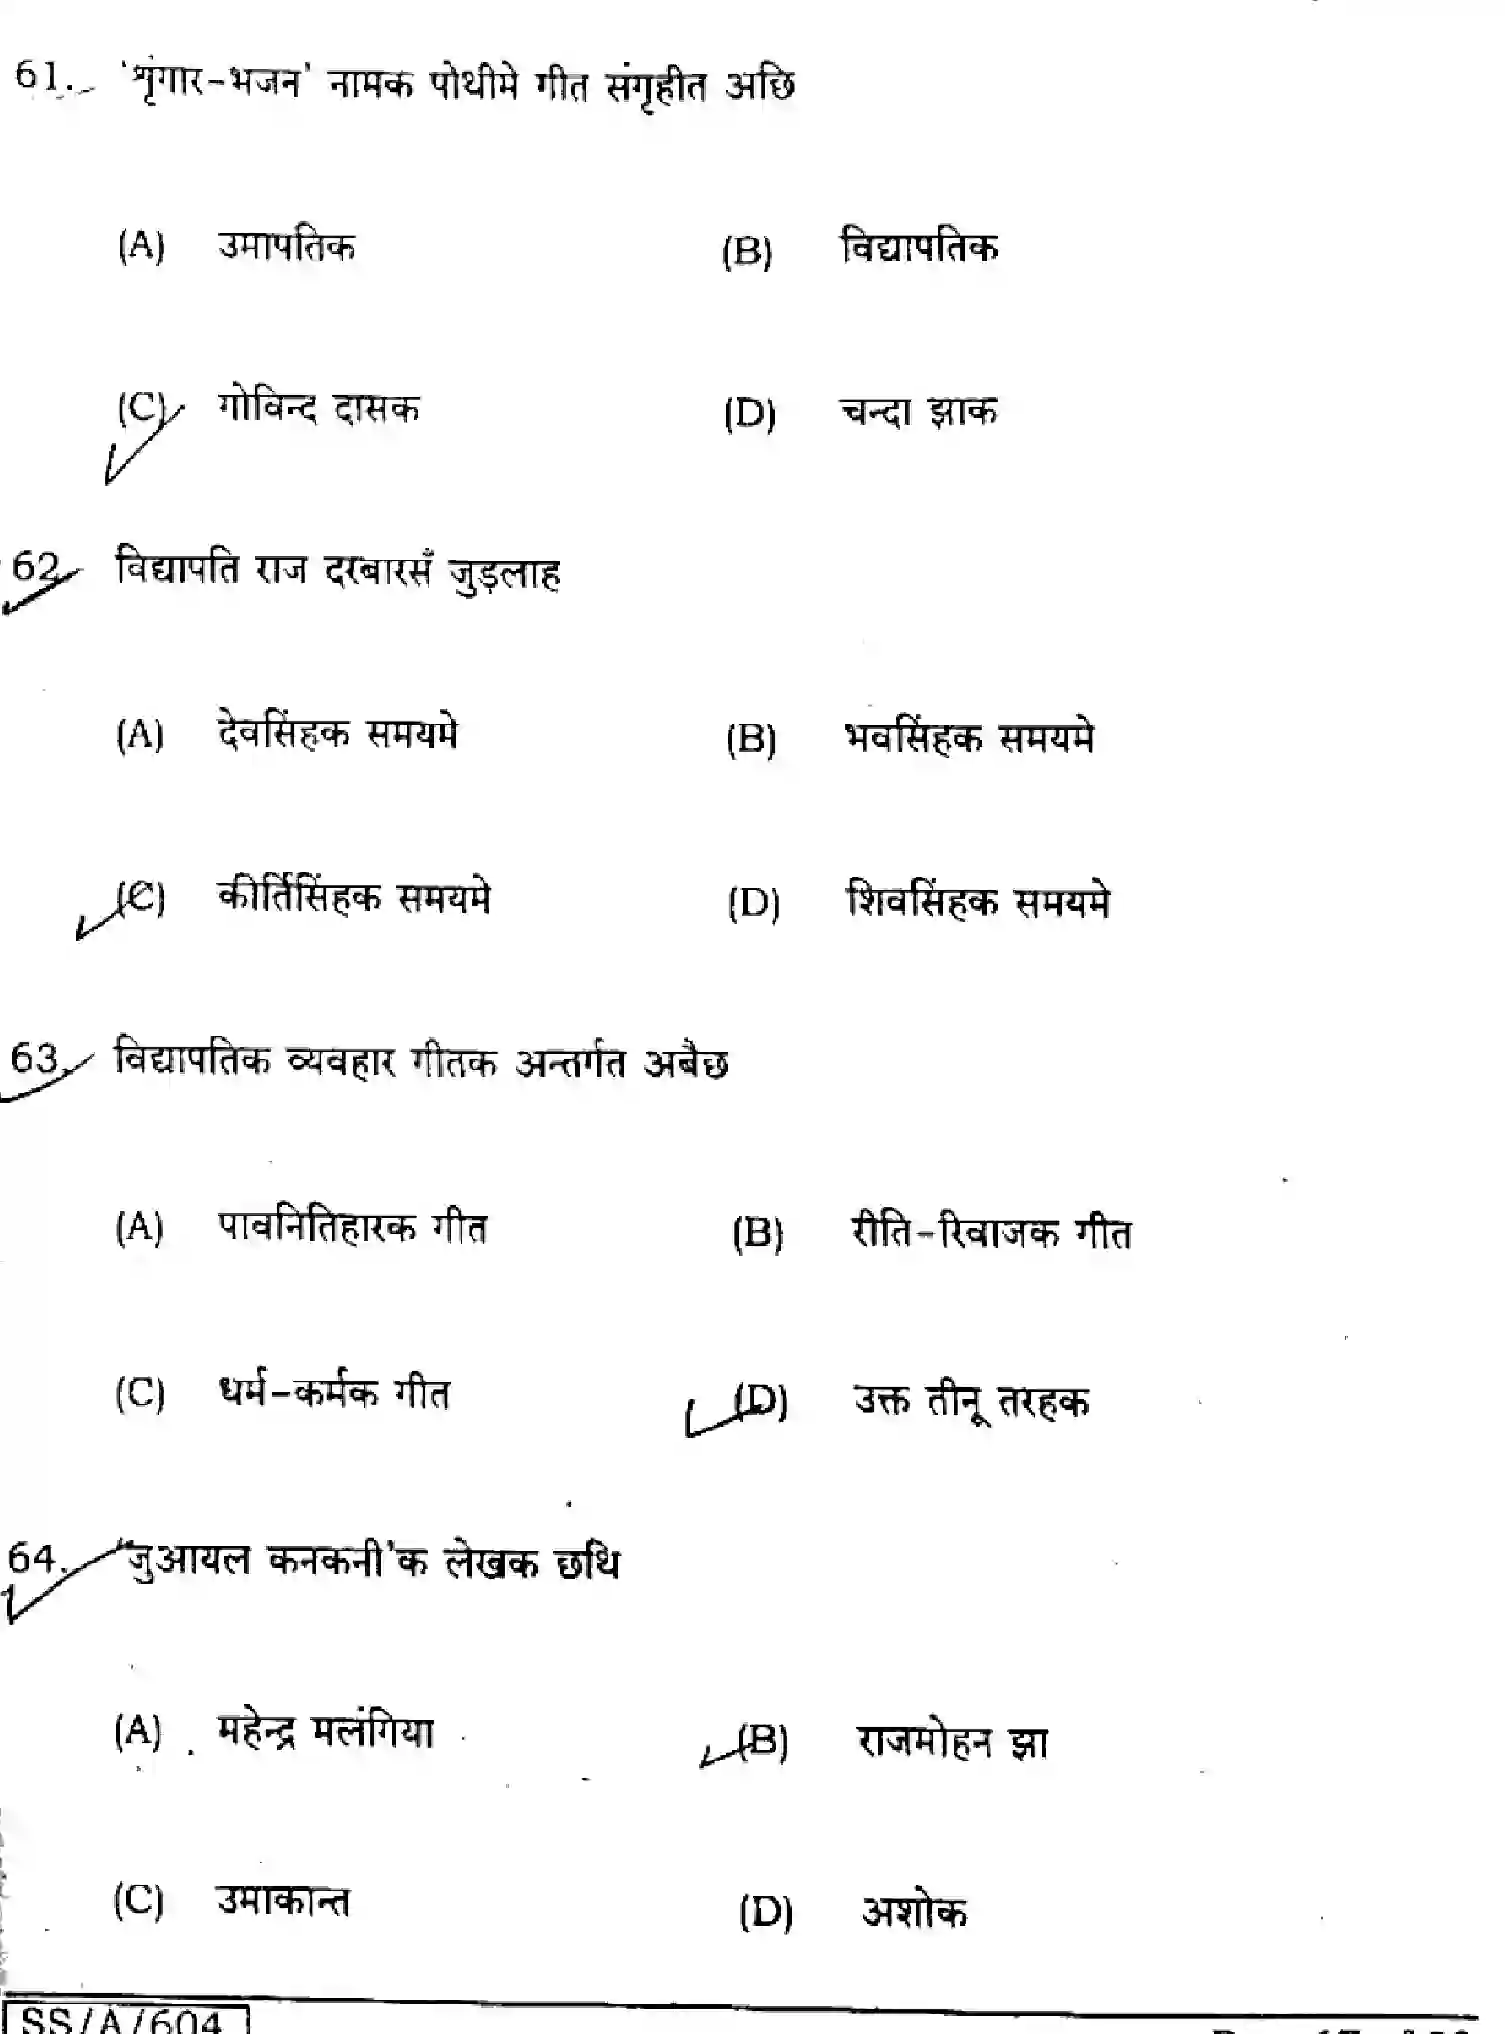 61. 'शृंगार-भजन' नामक पोथीमे गीत संगृहीत अछि
(A) उमापतिक (B) विद्यापतिक
(C) गोविन्द दासक (D) चन्दा झाक
62. विद्यापति राज दरबारसँ जुड़लाह
(A) देवसिंहक समयमे (B) भवसिंहक समयमे
(C) कीर्तिसिंहक समयमे (D) शिवसिंहक समयमे
63. विद्यापतिक व्यवहार गीतक अन्तर्गत अबैछ
(A) पावनितिहारक गीत (B) रीति-रिवाजक गीत
(C) धर्म-कर्मक गीत (D) उक्त तीनू तरहक
64. 'जुआयल कनकनी'क लेखक छथि
(A) महेन्द्र मलंगिया (B) राजमोहन झा
(C) उमाकान्त (D) अशोक
SS/A/604